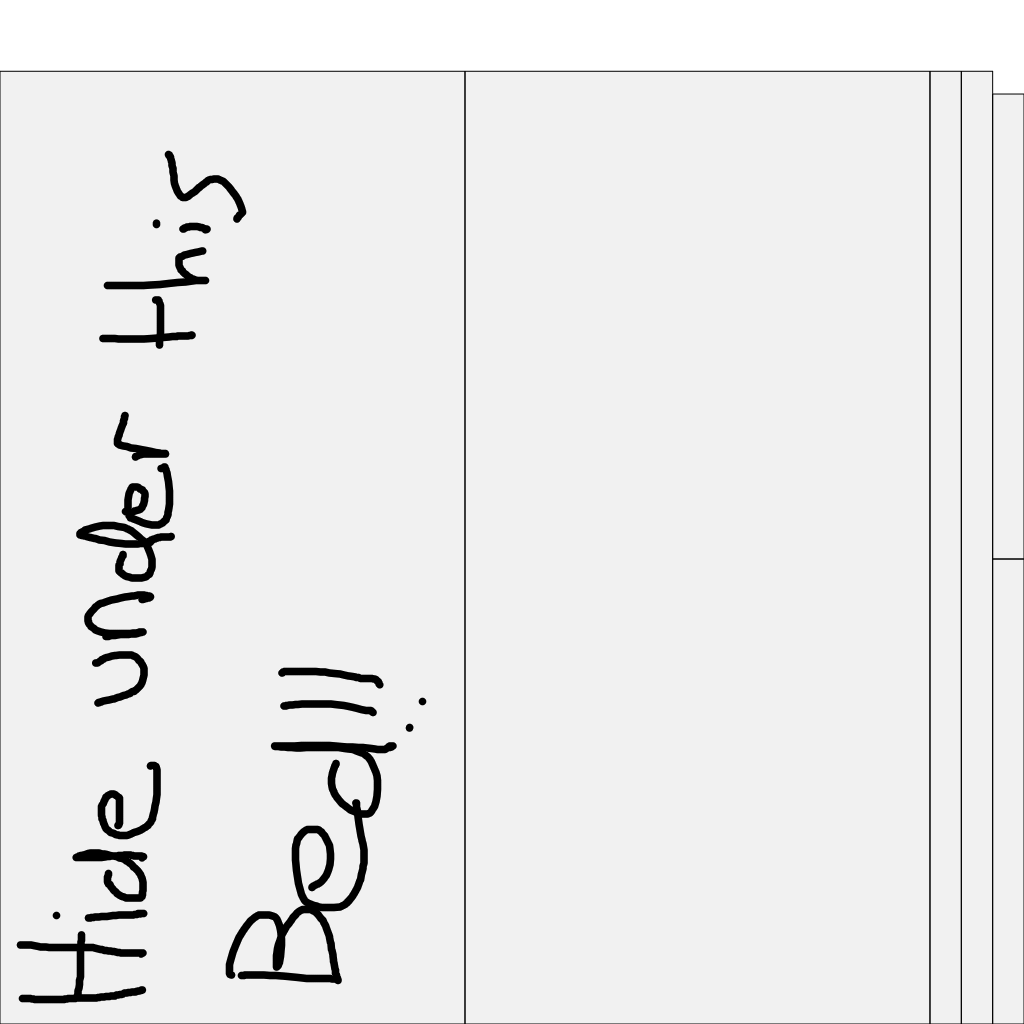 Hide under this
Bed!!